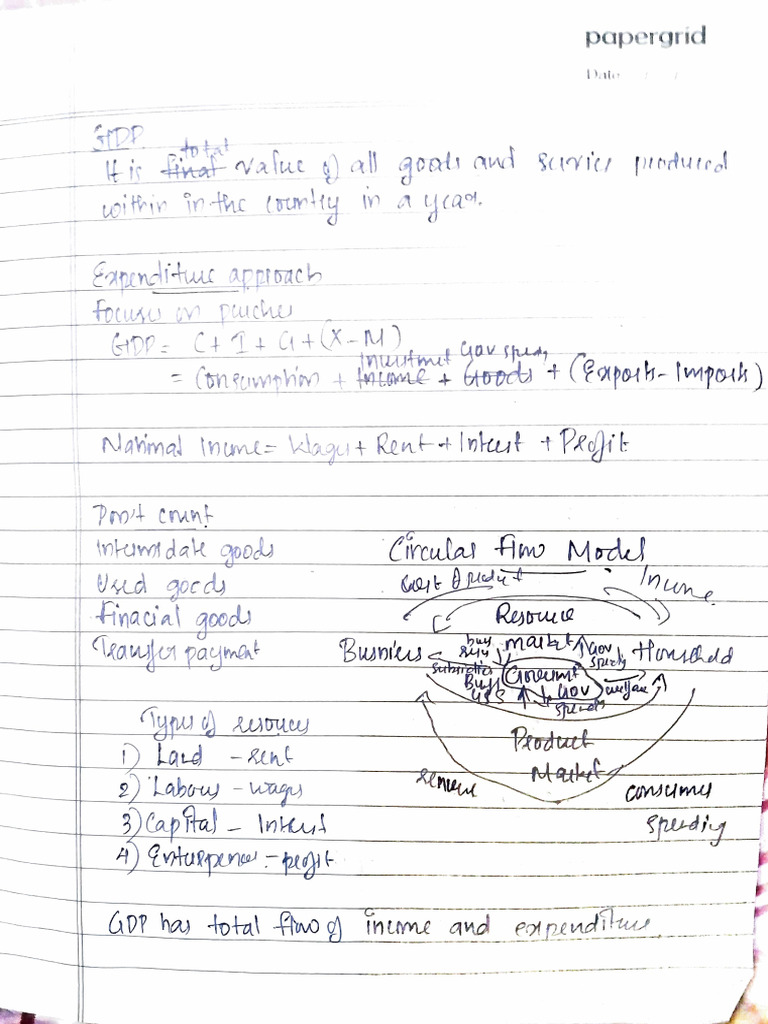 papergrid
Date
GDP
total
It is final value of all goods and servies produced
within in the country in a year.
Expenditure approach
Focuses on purches
GDP = C + I + G + (X - M)
Investmet Gov spends
= Consumption + Income + Goods + (Exports - Imports)
National Income = Wages + Rent + Interest + Profit
Don't count
Intermidate goods
Used goods
Finacial goods
Transfer payment
Circular flow Model
Income
Resource
market
Busniess
Household
buy
Gov
spends
subsidies
Goverment
Buy
G&S
Gov
spends
welfare
Product
Market
revenue
consumer
spending
Types of resources
1) Land - rent
2) Labour - wages
3) Capital - Interest
4) Enterprener - profit
GDP has total flow of income and expenditure